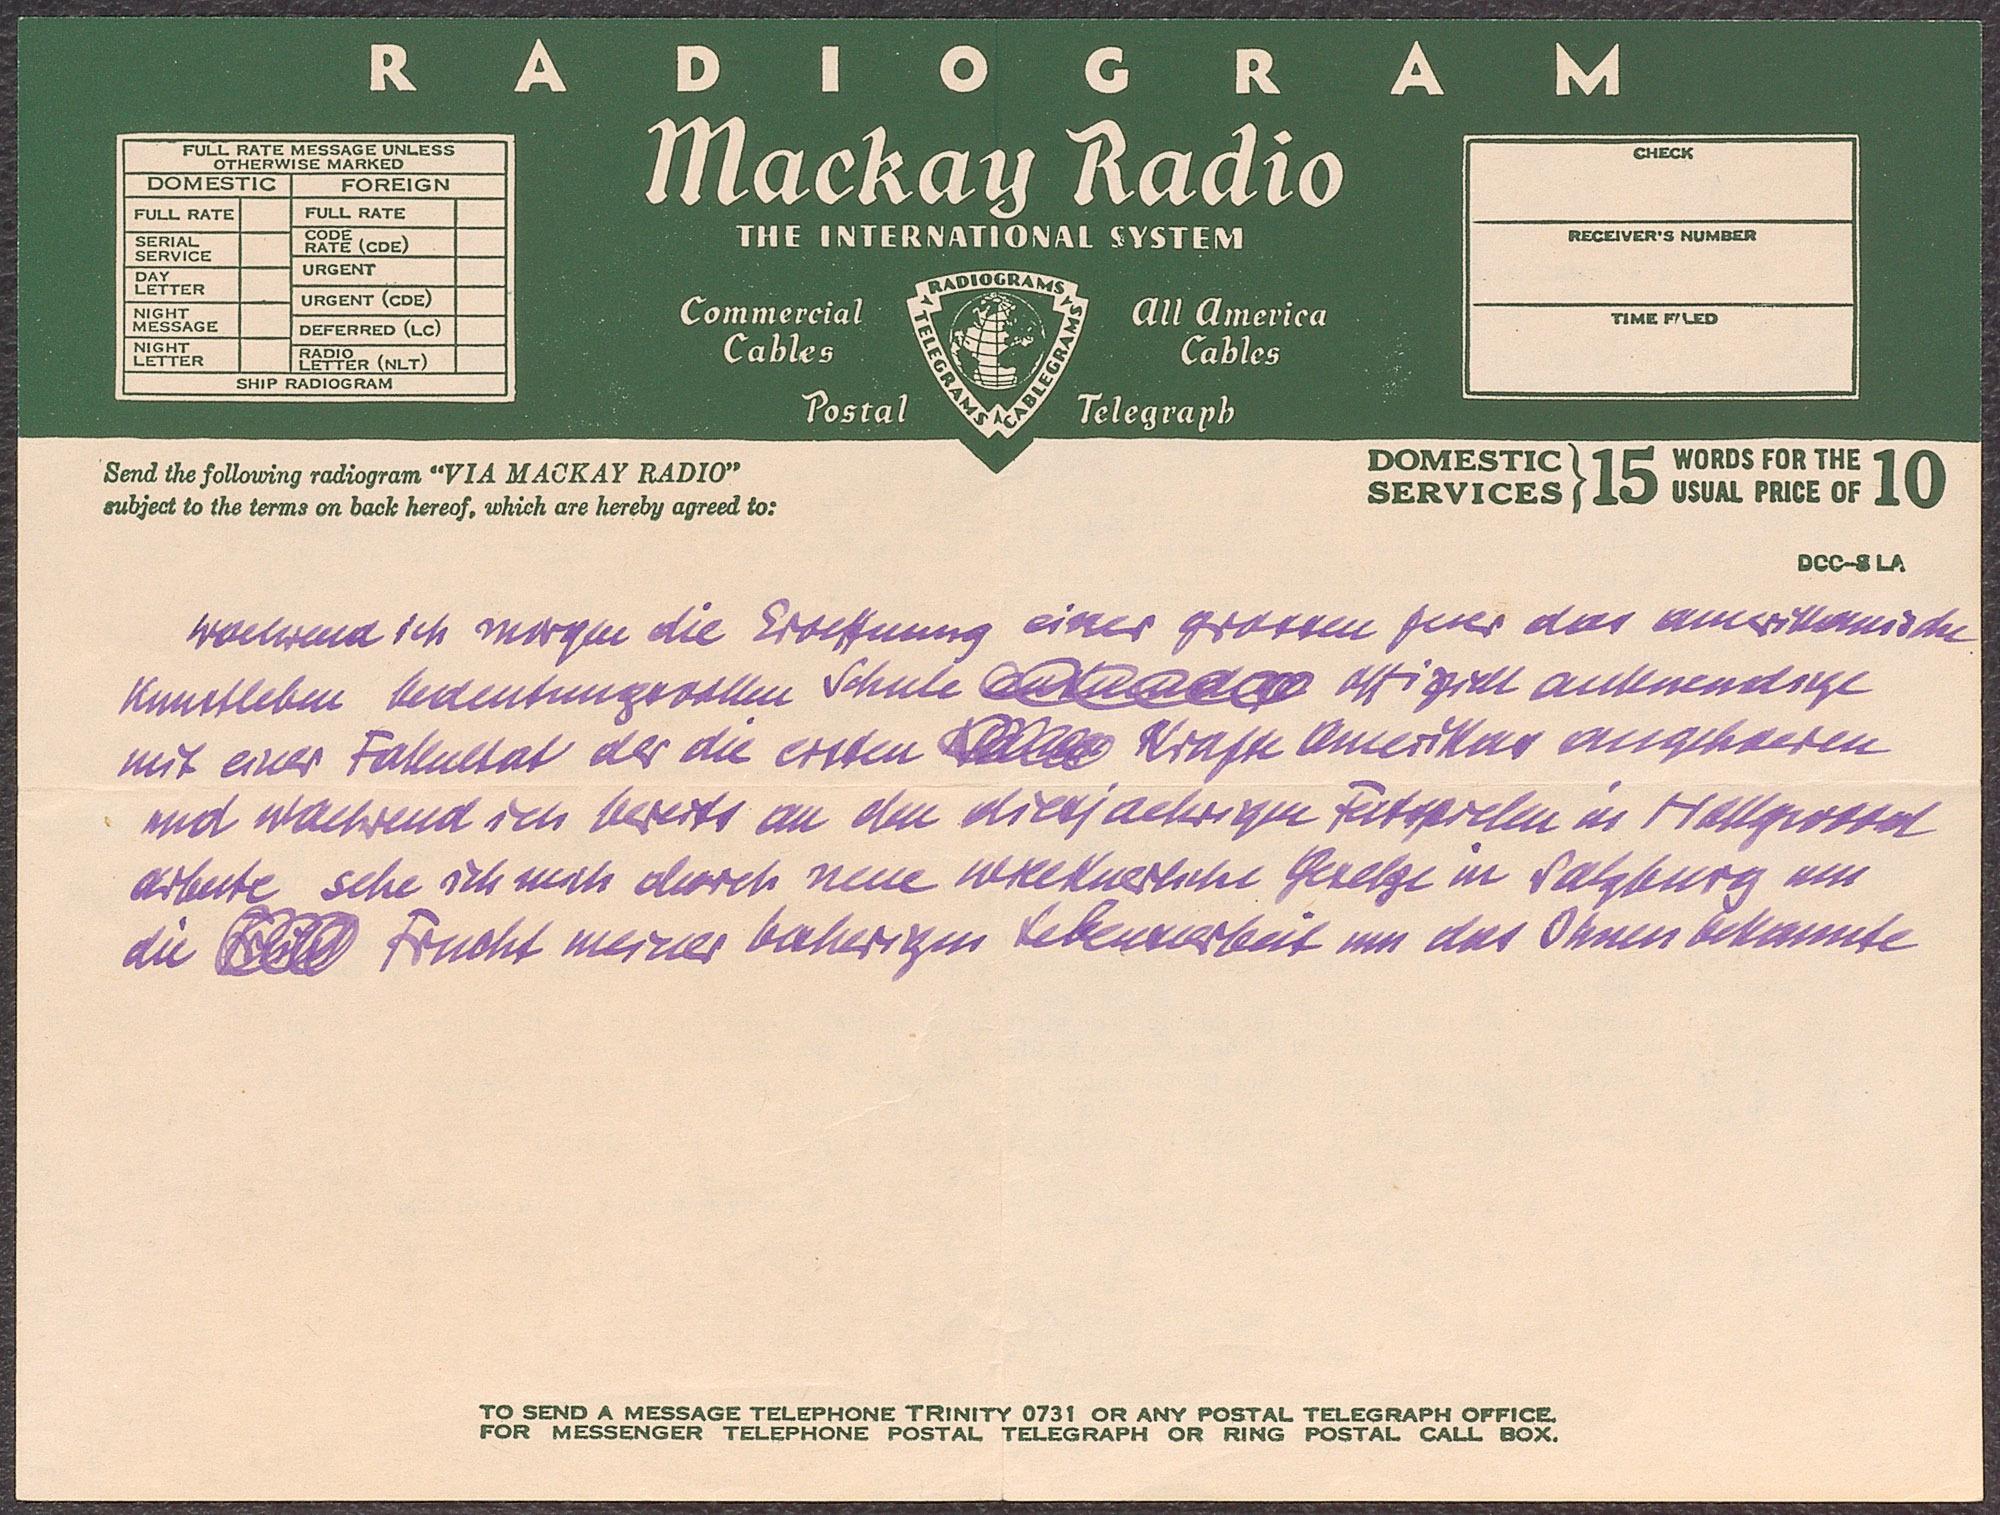 RADIOGRAM
Mackay Radio
THE INTERNATIONAL SYSTEM
Commercial Cables
All America Cables
Postal Telegraph
RADIOGRAMS TELEGRAMS CABLEGRAMS
FULL RATE MESSAGE UNLESS
OTHERWISE MARKED
DOMESTIC
FULL RATE
SERIAL SERVICE
DAY LETTER
NIGHT MESSAGE
NIGHT LETTER
FOREIGN
FULL RATE
CODE RATE (CDE)
URGENT
URGENT (CDE)
DEFERRED (LC)
RADIO LETTER (NLT)
SHIP RADIOGRAM
CHECK
RECEIVER'S NUMBER
TIME FILED
Send the following radiogram “VIA MACKAY RADIO”
subject to the terms on back hereof, which are hereby agreed to:
DOMESTIC SERVICES } 15 WORDS FOR THE USUAL PRICE OF 10
DCC-8 LA
waehrend ich morgen die Eroeffnung einer grossen fuer das amerikanische
Kunstleben bedeutungsvollen Schule offiziell ankuendige
mit einer Fakultat der die ersten Krafte Amerikas angehoeren
und waehrend ich bereits an den diesjaehrigen Festspielen in Hollywood
arbeite sehe ich mich durch neue Gesetze in Salzburg um
die Frucht meiner bisherigen Lebensarbeit um das Ihnen bekannte
TO SEND A MESSAGE TELEPHONE TRINITY 0731 OR ANY POSTAL TELEGRAPH OFFICE.
FOR MESSENGER TELEPHONE POSTAL TELEGRAPH OR RING POSTAL CALL BOX.